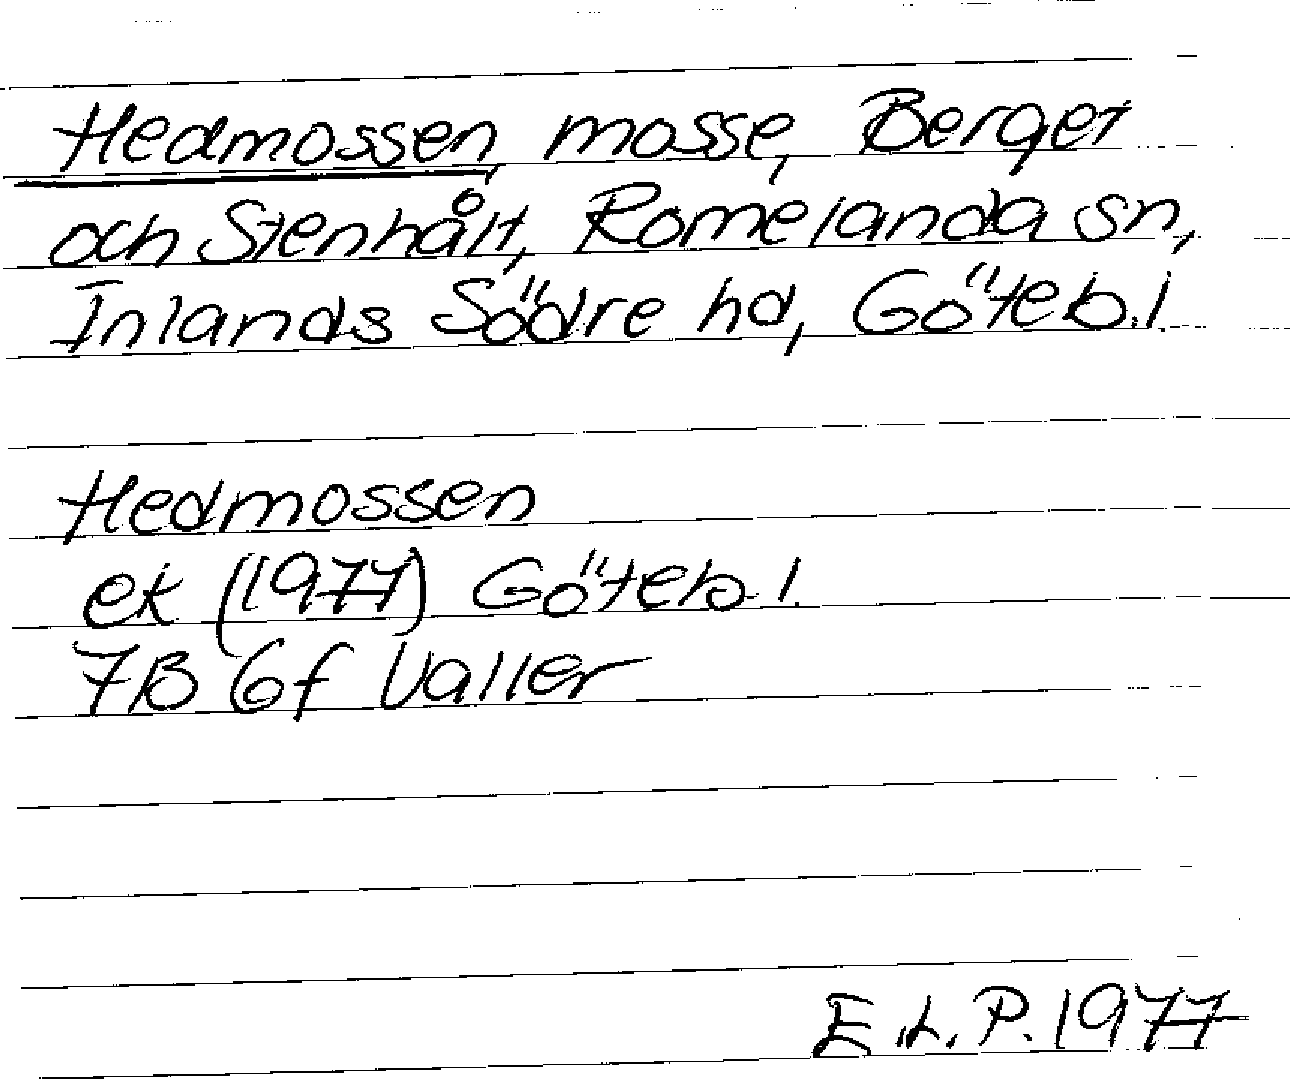 Hedmossen, mosse, Berget
och Stenhålt, Romelanda sn,
Inlands Södre hd, Göteb.l.
Hedmossen
ek (1977) Göteb.l.
7B 6f Valler
E.L.P. 1977